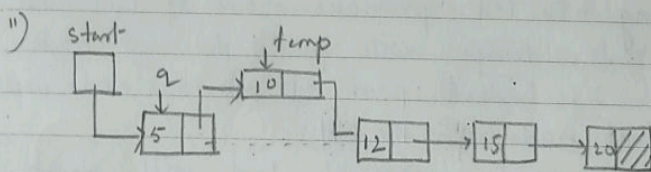 11)
start
temp
q
10
5
12
15
20